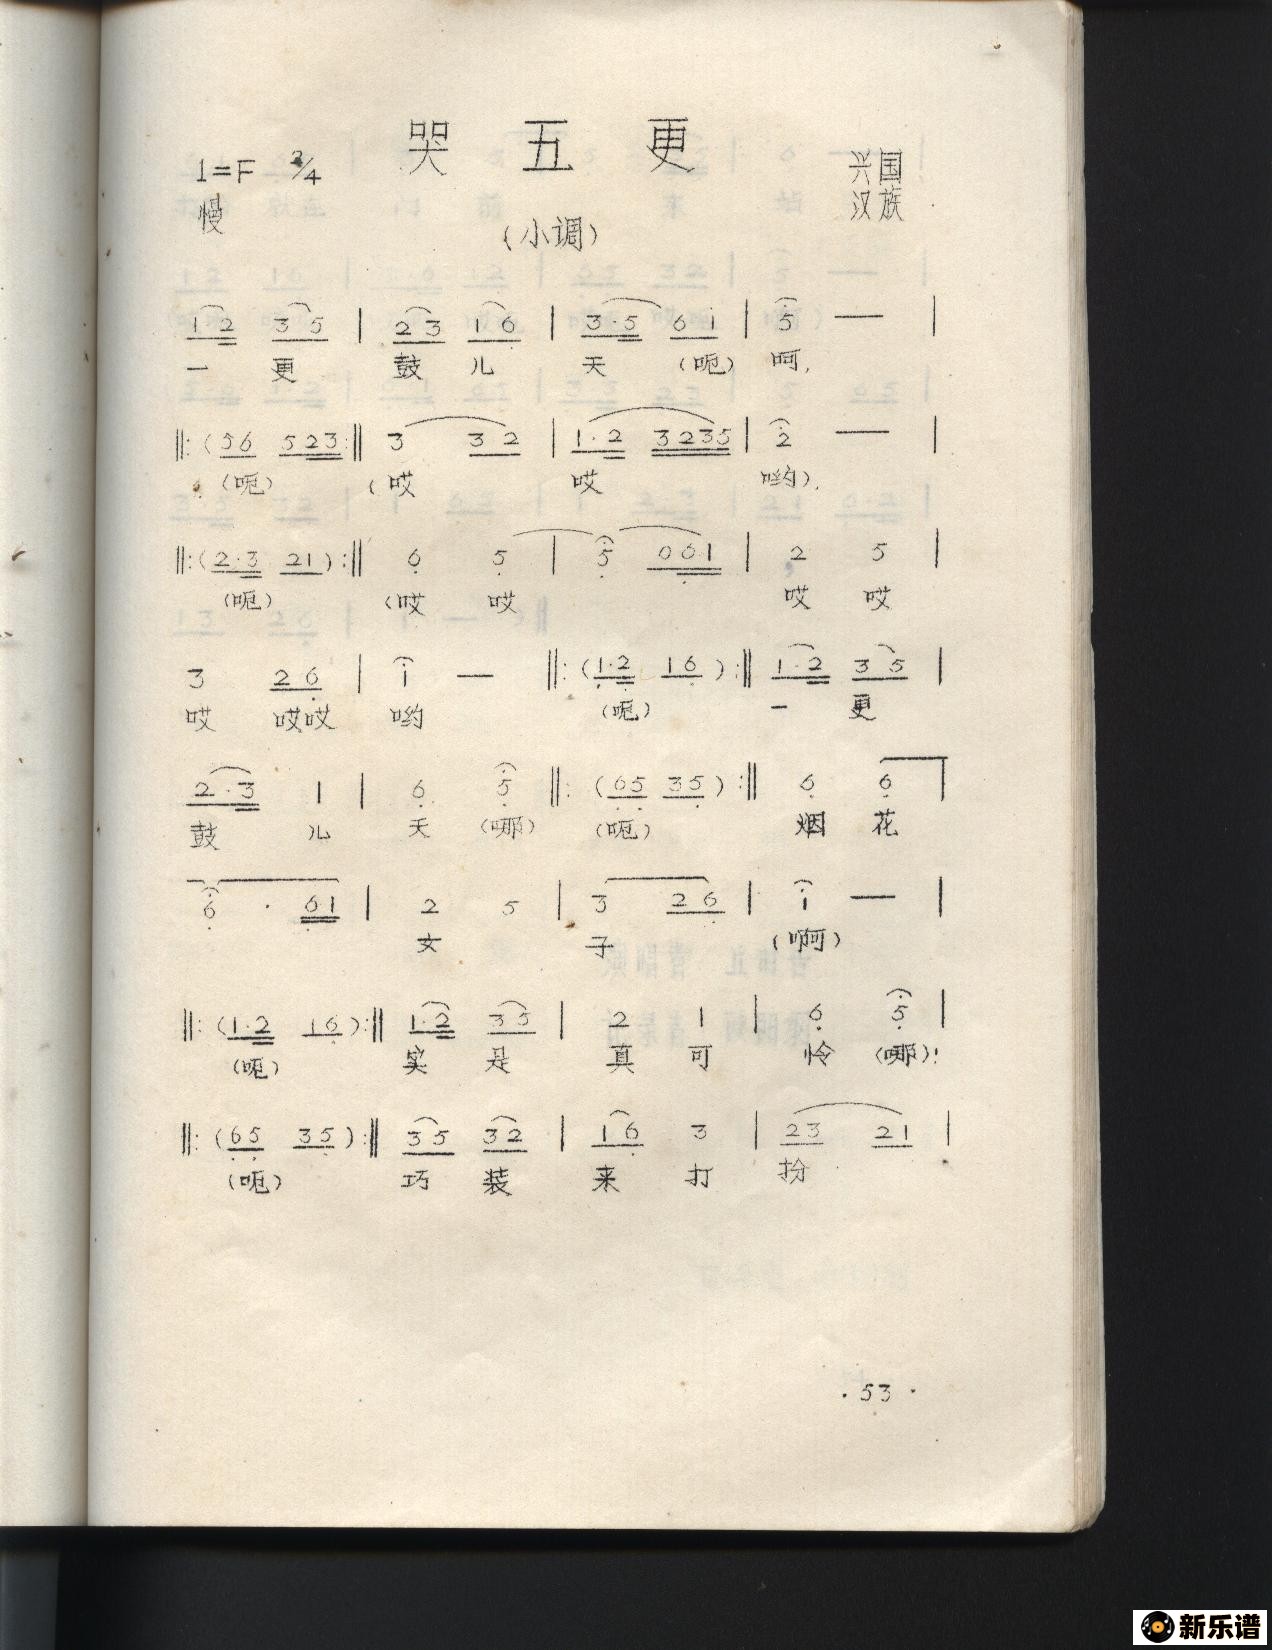 哭五更
1=F 2/4
兴国
慢
汉族
(小调)
1·2 3 5 | 2 3 1 6 | 3·5 6 1 | 5 — |
一 更 鼓 儿 天 (呃) 呵,
‖:(56 523:‖ 3 3 2 | 1·2 3235 | 2 — |
(呃) (哎 哎 哟),
‖:(2·3 21):‖ 6 5 | 5 061 | 2 5 |
(呃) (哎 哎 哎 哎
3 2 6 | 1 — ‖:(1·2 16):‖ 1·2 3 5 |
哎 哎哎 哟 (呃) 一 更
2·3 1 | 6 5 ‖:(65 35):‖ 6 6 |
鼓 儿 天 (哪) (呃) 烟 花
6 · 61 | 2 5 | 3 2 6 | 1 — |
女 子 (啊)
‖:(1·2 16):‖ 1·2 35 | 2 1 | 6 5 |
(呃) 实 是 真 可 怜 (哪)!
‖:(65 35):‖ 35 32 | 16 3 | 23 21 |
(呃) 巧 装 来 打 扮
·53·
新乐谱